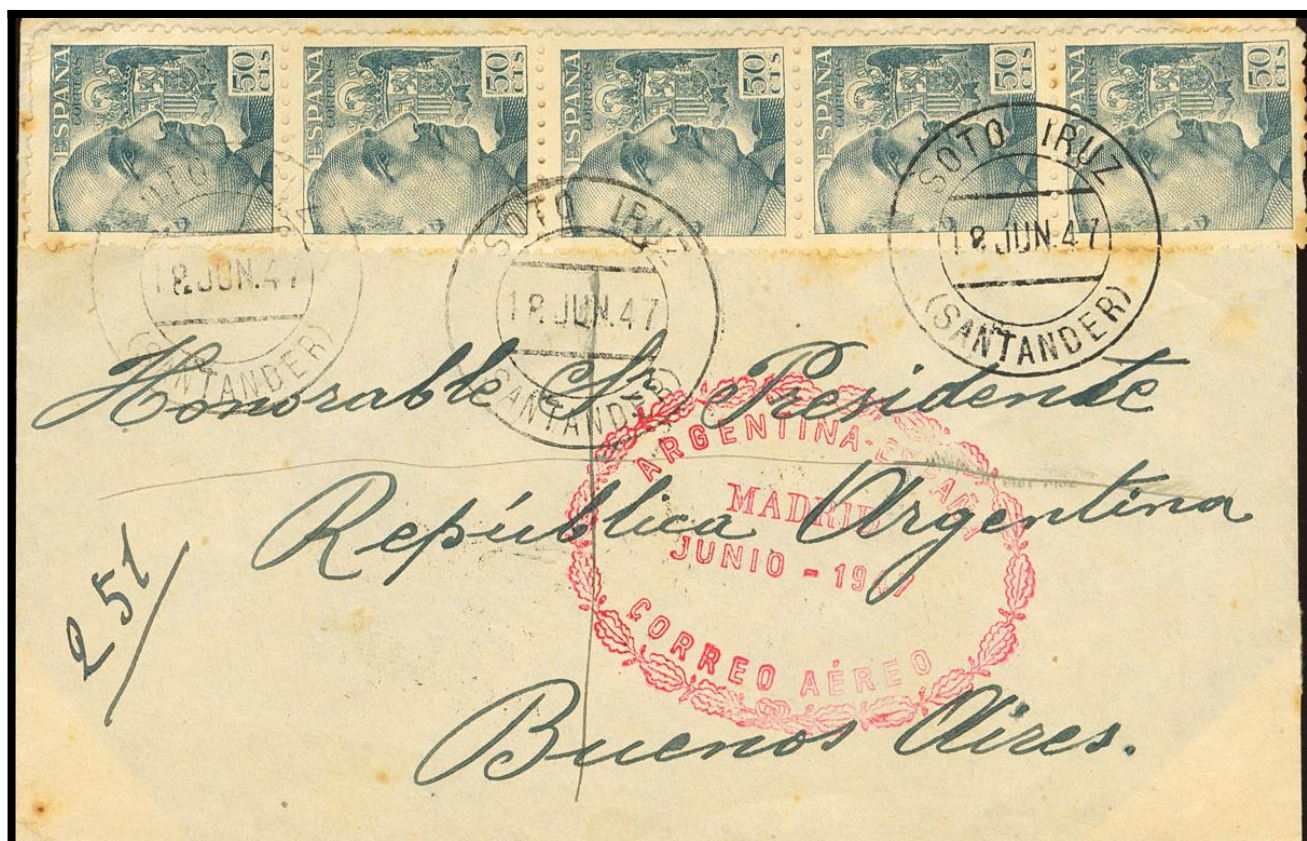 ESPAÑA CORREOS 50 CTS
ESPAÑA CORREOS 50 CTS
ESPAÑA CORREOS 50 CTS
ESPAÑA CORREOS 50 CTS
ESPAÑA CORREOS 50 CTS
SOTO
18 JUN.47
(SANTANDER)
SOTO IRUZ
18 JUN.47
(SANTANDER)
SOTO IRUZ
18 JUN.47
(SANTANDER)
Honorable Sr. Presidente
República Argentina
Buenos Aires.
251/
ARGENTINA-ESPAÑA
MADRID
JUNIO - 1947
CORREO AÉREO